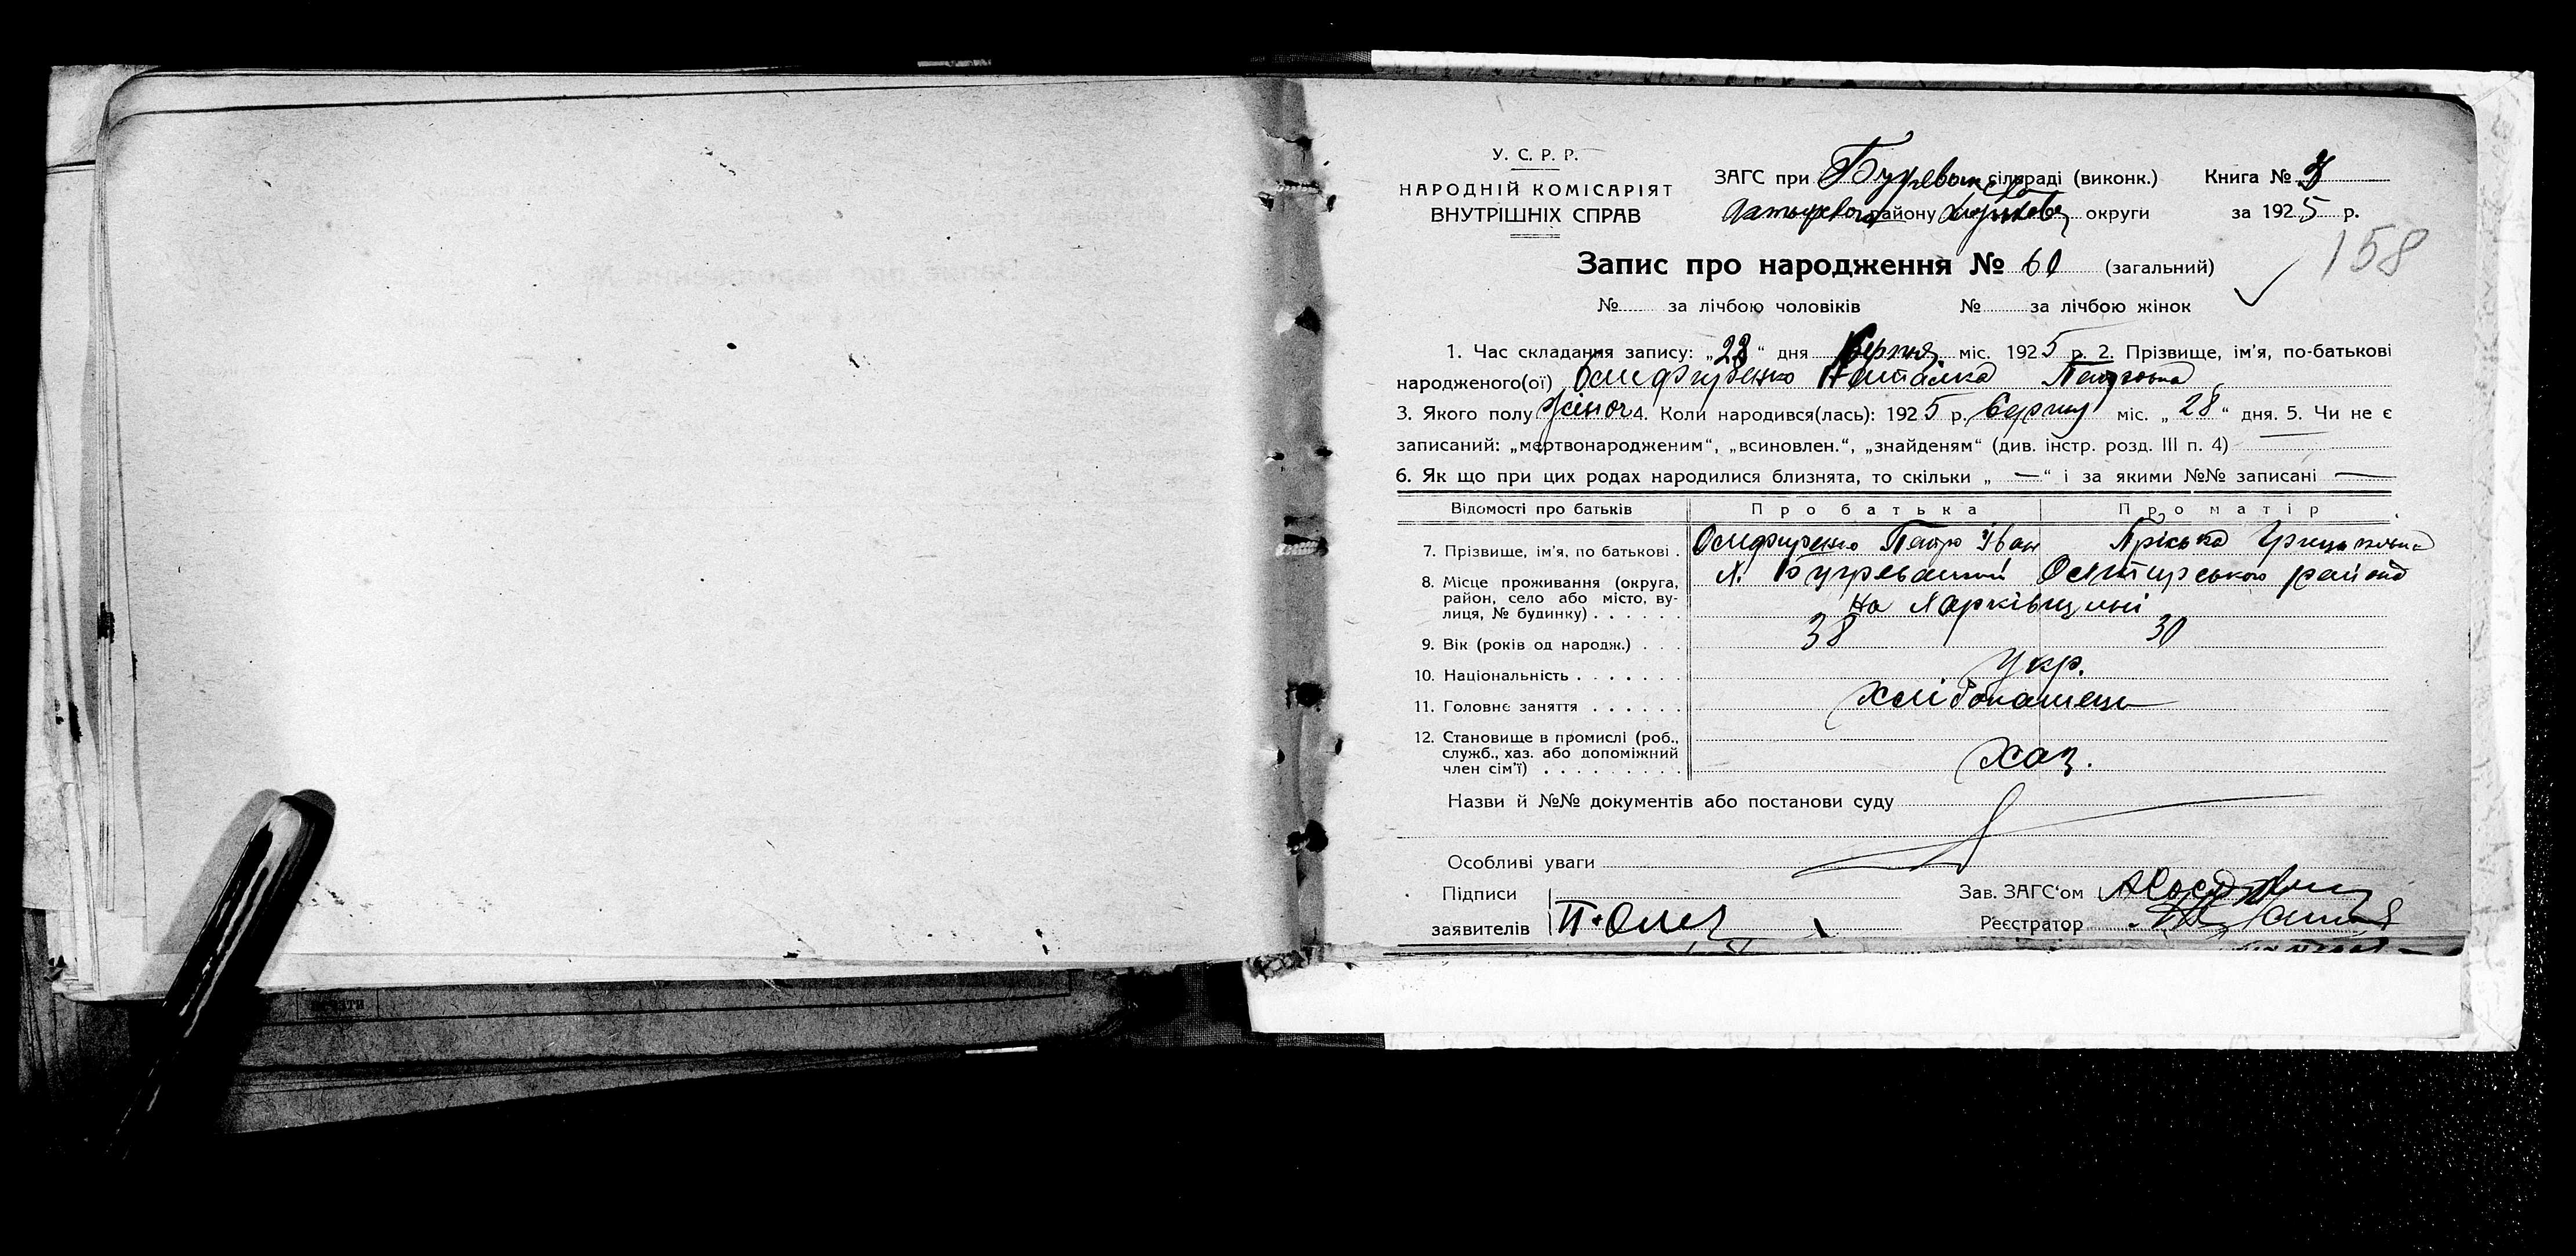 У. С. Р. Р.
НАРОДНІЙ КОМІСАРІЯТ
ВНУТРІШНІХ СПРАВ
ЗАГС при сільраді (виконк.) Книга №
району округи за 1925 р.
158
Запис про народження № 60 (загальний)
№ за лічбою чоловіків № за лічбою жінок
1. Час складання запису: „28“ дня Серпня міс. 1925 р. 2. Прізвище, ім'я, по-батькові
народженого(ої) Наталка Петровна
3. Якого полу жіноч 4. Коли народився(лась): 1925 р. Серпня міс. „28“ дня. 5. Чи не є
записаний: „мертвонародженим“, „всиновлен.“, „знайденям“ (див. інстр. розд. III п. 4) —
6. Як що при цих родах народилися близнята, то скільки „—“ і за якими №№ записані —
Відомості про батьків Про батька Про матір
7. Прізвище, ім'я, по батькові . Петро Іван Пріська Грицьковна
8. Місце проживання (округа, район, село або місто, вулиця, № будинку) . . . . . . х. Охтирського району
на Харківщині
9. Вік (років од народж.) . . . 38 30
10. Національність . . . . . . . Укр.
11. Головне заняття . . . . . . хлібопашець
12. Становище в промислі (роб., служб., хаз. або допоміжний член сім'ї) . . . . . . . . . хаз.
Назви й №№ документів або постанови суду
Особливі уваги
Підписи Зав. ЗАГС'ом
заявителів Реєстратор